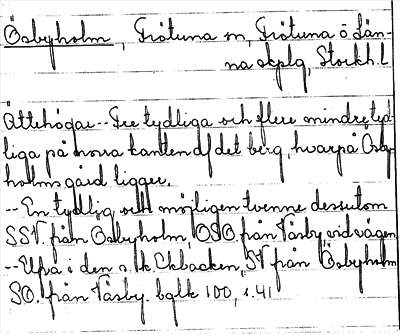 Ösbyholm, Frötuna sn, Frötuna o Län-
na skplg, Stockh.l
Ättehögar -- Tre tydliga och flere mindre tyd-
liga på norra kanten af det berg, hvarpå Ösby-
holms gård ligger.
-- En tydlig och möjligen tvenne dessutom
SSV. från Ösbyholm, OSO. från Väsby vid vägen
-- Upa i den s.k. Ekbacken, SV från Ösbyholm
SO. från Väsby. bqlk 100, s.41